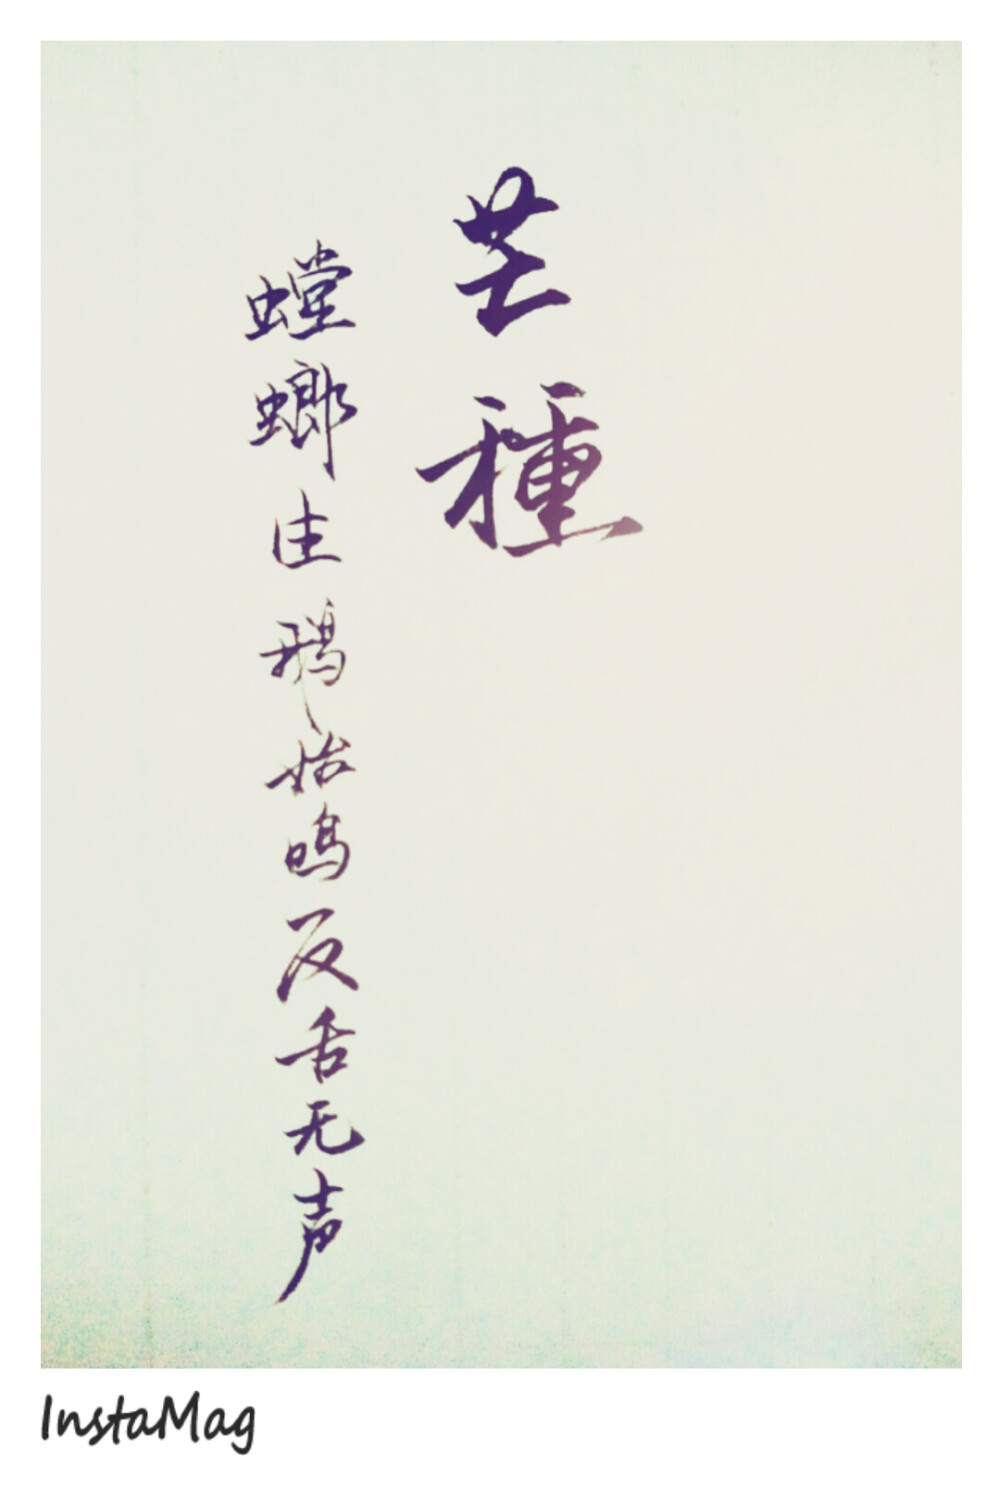 芒種
螳螂生 始鳴反舌无声
InstaMag